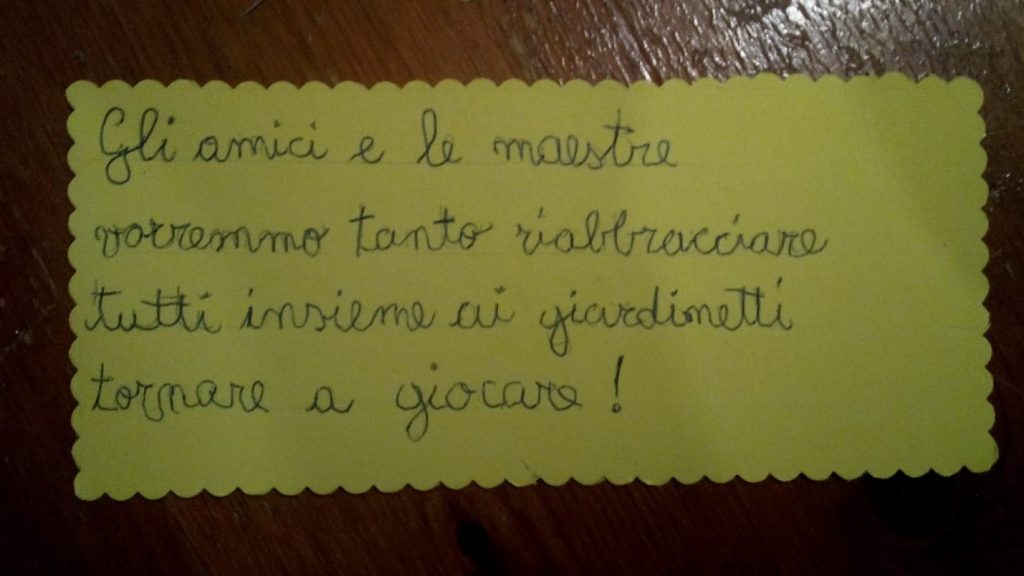 Gli amici e le maestre
vorremmo tanto riabbracciare
tutti insieme ai giardinetti
tornare a giocare!